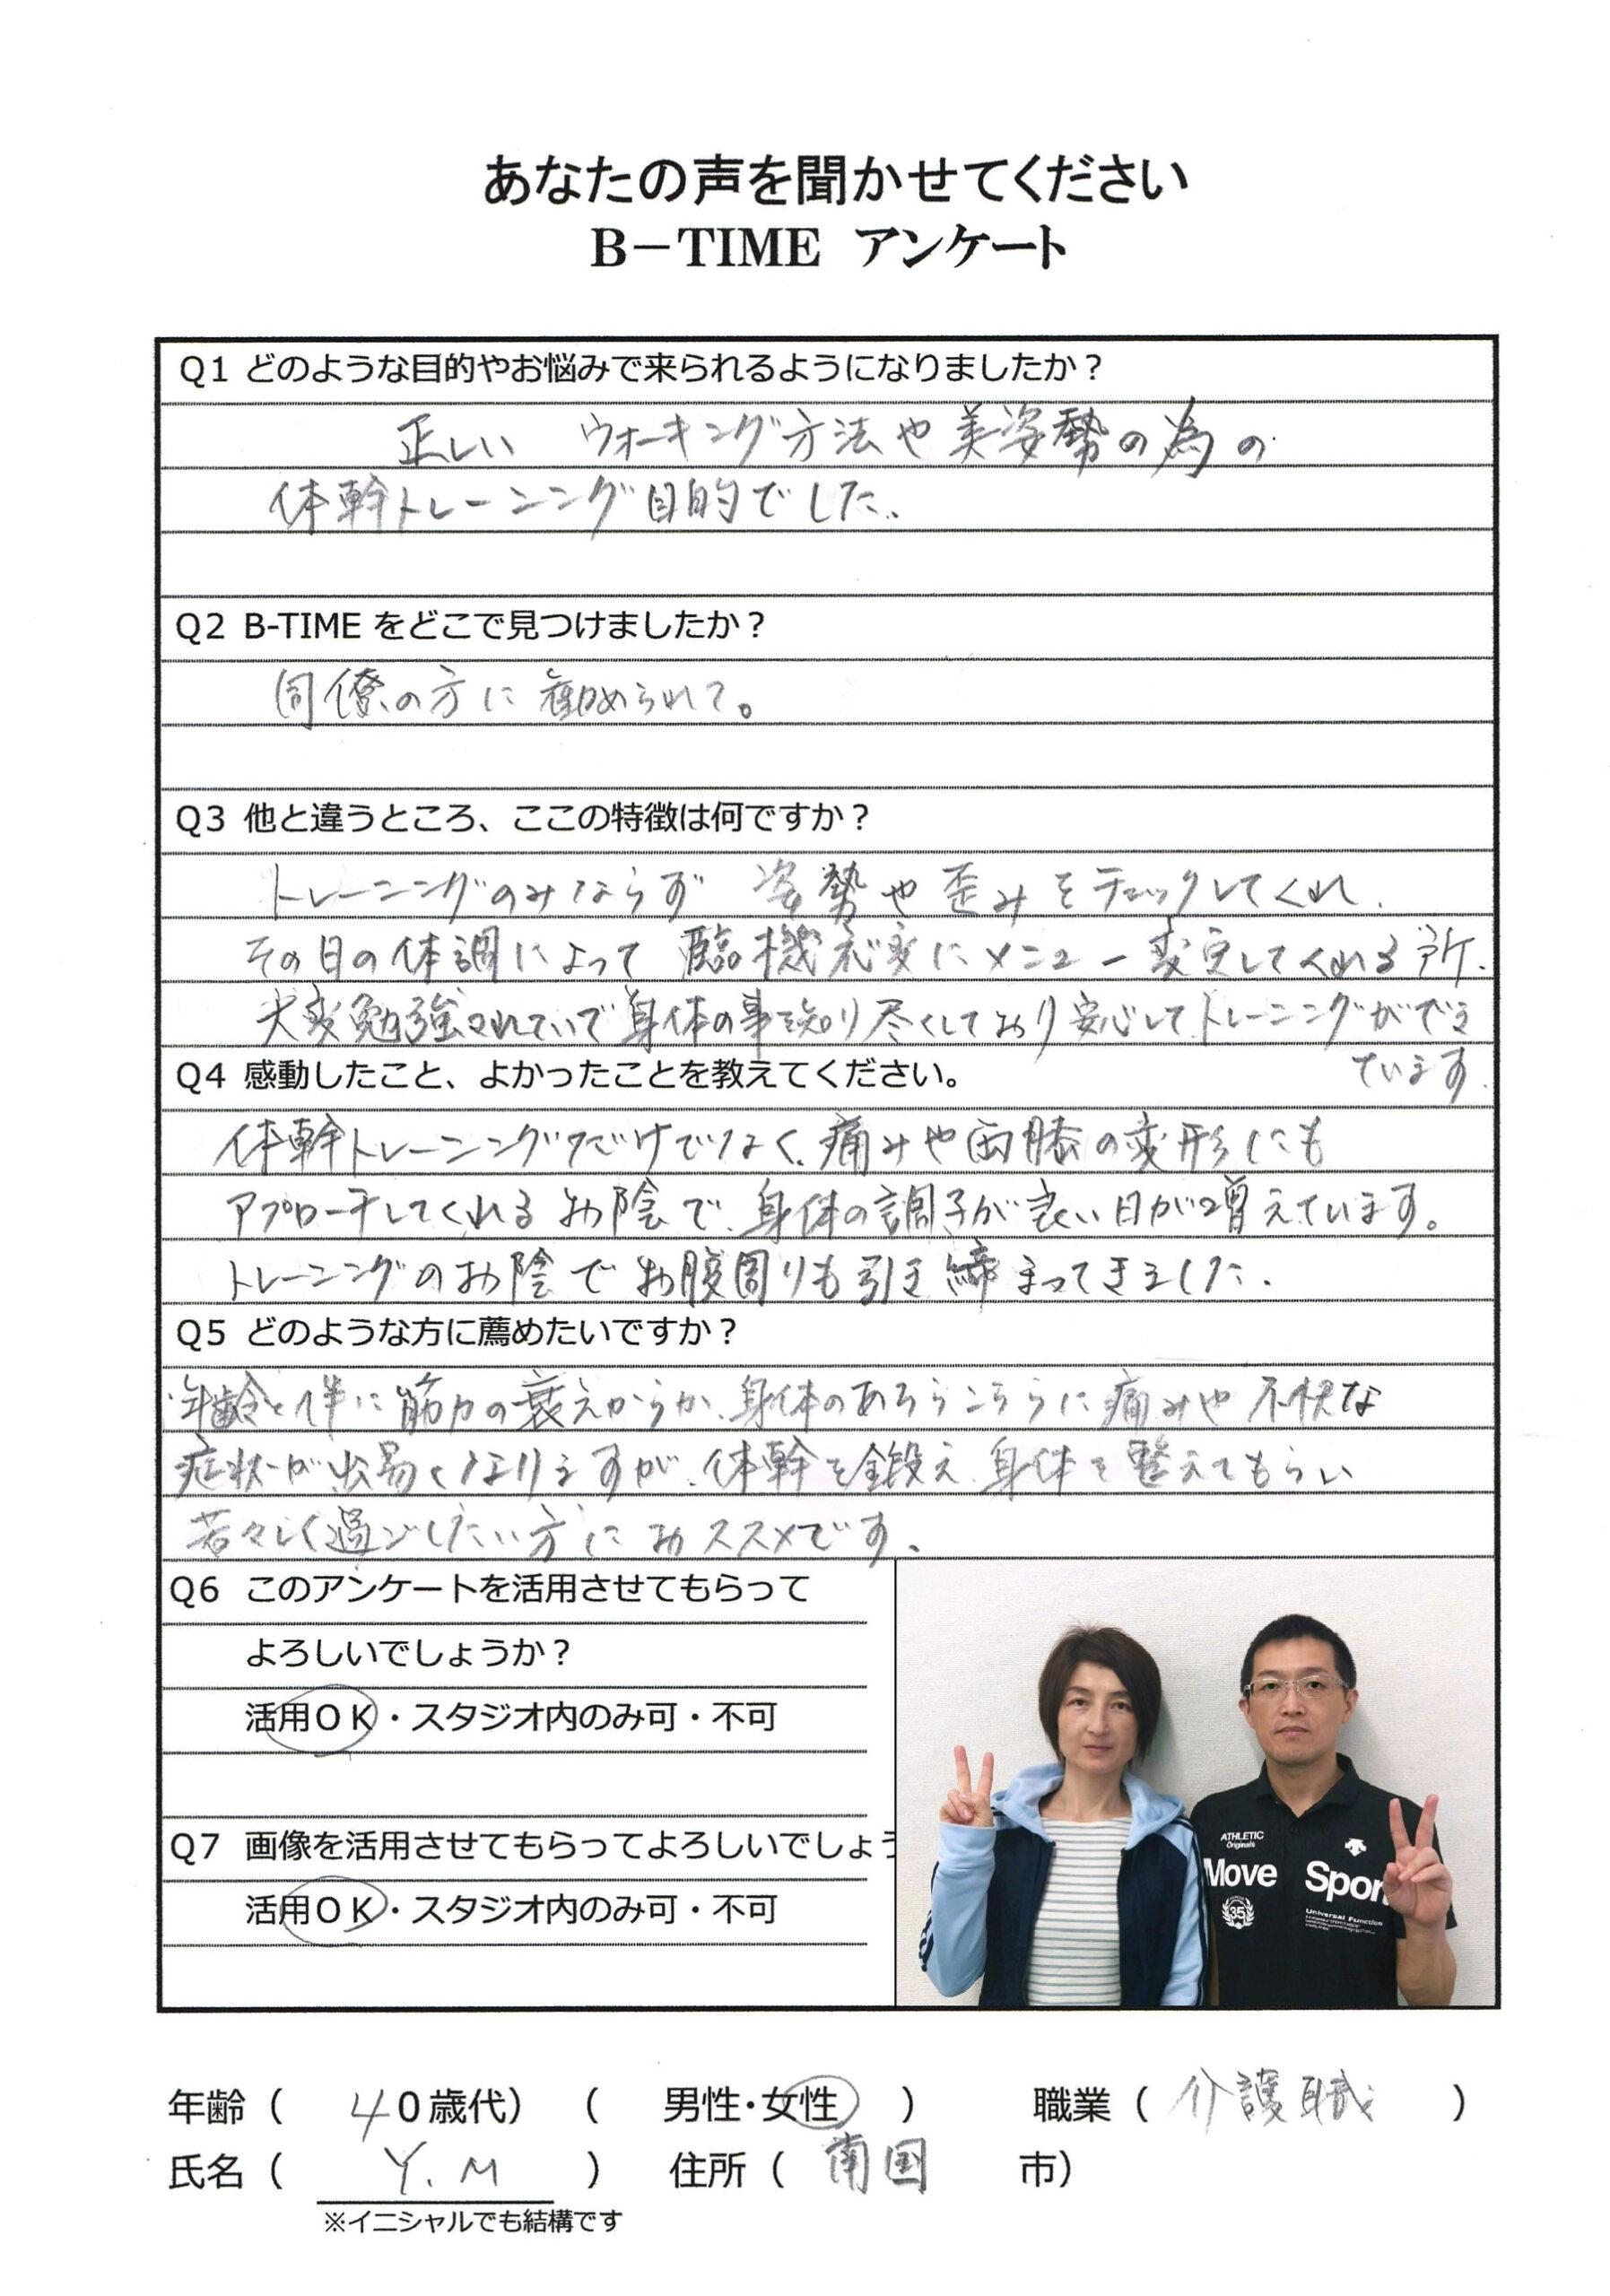 あなたの声を聞かせてください
B－TIME アンケート
Q1 どのような目的やお悩みで来られるようになりましたか？
正しい ウォーキング方法や美姿勢の為の
体幹トレーニング目的でした.
Q2 B-TIME をどこで見つけましたか？
同僚の方に勧められて。
Q3 他と違うところ、ここの特徴は何ですか？
トレーニングのみならず 姿勢や歪みをチェックしてくれ、
その日の体調によって 臨機応変にメニュー変更してくれる所、
大変勉強されていて身体の事を知り尽くしており安心してトレーニングができ
ています.
Q4 感動したこと、よかったことを教えてください。
体幹トレーニングだけでなく、痛みや両膝の変形にも
アプローチしてくれるお陰で、身体の調子が良い日が増えています。
トレーニングのお陰でお腹周りも引き締まってきました.
Q5 どのような方に薦めたいですか？
年齢と伴に筋力の衰えからか、身体のあちらこちらに痛みや不快な
症状が出易くなりますが、体幹を鍛え、身体を整えてもらい
若々しく過ごしたい方におススメです.
Q6 このアンケートを活用させてもらって
よろしいでしょうか？
活用ＯＫ・スタジオ内のみ可・不可
Q7 画像を活用させてもらってよろしいでしょう
活用ＯＫ・スタジオ内のみ可・不可
ATHLETIC
Originals
Move Spor
35
Universal Function
年齢（ 40歳代） （ 男性・女性 ） 職業（ 介護職 ）
氏名（ Y.M ） 住所（ 南国 市）
※イニシャルでも結構です